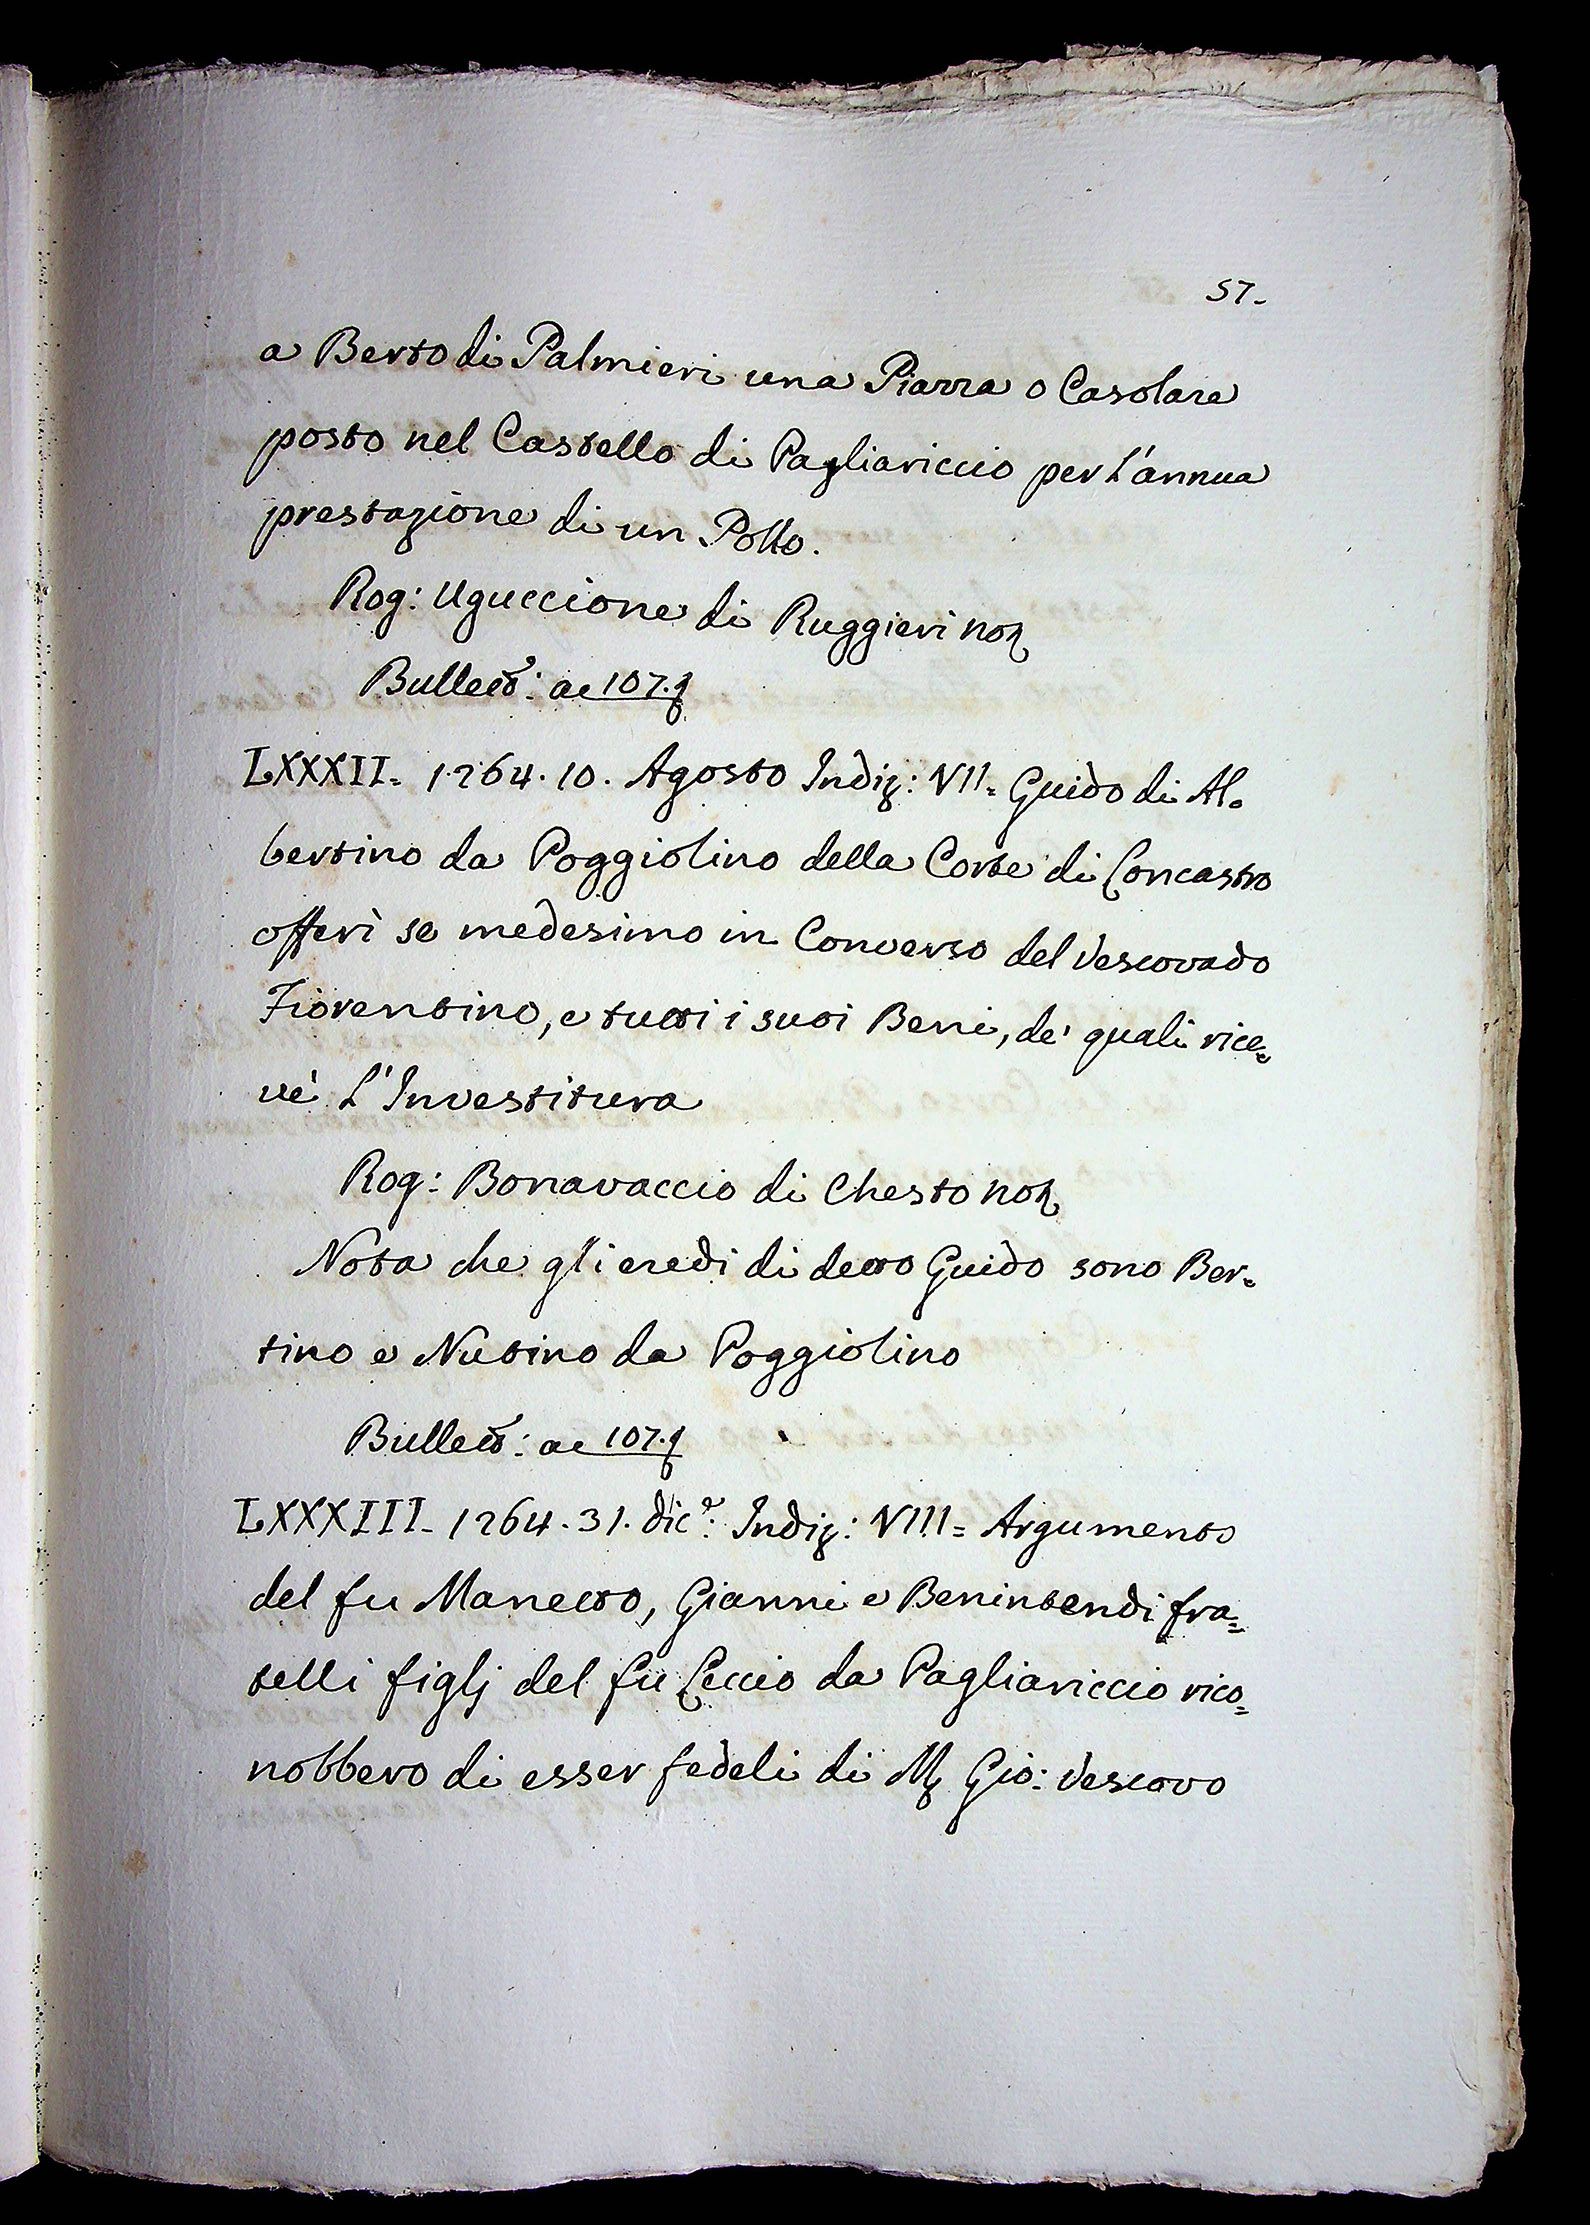 57.
a Berto di Palmieri una Piazza o Casolare
posto nel Castello di Pagliariccio per l'annua
prestazione di un Pollo.
Rog: Uguccione di Ruggieri not
Bullett: ac 107.
LXXXII. 1264. 10. Agosto Indiz: VII= Guido di Al=
bertino da Poggiolino della Corte di Loncastro
offerì se medesimo in Converso del Vescovado
Fiorentino, e tutti i suoi Beni, de' quali rice=
vè l'Investitura
Rog: Bonavaccio di Chesto not
Nota che gli eredi di detto Guido sono Ber=
tino e Nutino da Poggiolino
Bullett: ac 107.
LXXXIII. 1264. 31. dic.e: Indiz: VIII= Argumento
del fu Manetto, Gianni e Benintendi fra=
telli figlj del fu Leccio da Pagliariccio rico=
nobbero di esser fedeli di M Gio: Vescovo